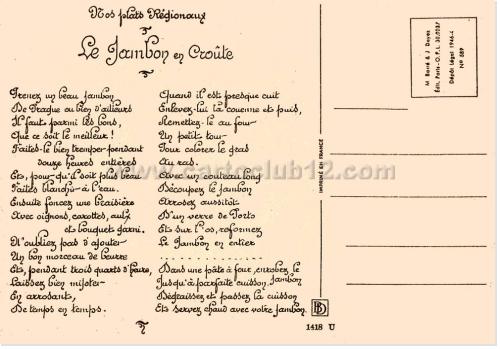 Nos plats Régionaux
Le Jambon en Croûte
Prenez un beau jambon
De Prague ou bien d'ailleurs
Il faut parmi les bons,
Que ce soit le meilleur !
Faites-le bien tremper pendant
douze heures entières
Et, pour qu'il soit plus beau
Faites blanchir à l'eau.
Ensuite foncez une braisière
Avec oignons, carottes, aulx
et bouquets garni.
N'oubliez pas d'ajouter
Un bon morceau de beurre
Et, pendant trois quarts d'heure,
Laissez bien mijoter
En arrosant,
De temps en temps.
Quand il est presque cuit
Enlevez-lui la couenne et puis,
Remettez-le au four
Un petit tour
Pour colorer le gras
Au ras.
Avec un couteau long
Découpez le jambon
Arrosez aussitôt
D'un verre de Porto
Et sur l'os, reformez
Le Jambon en entier
Dans une pâte à four, enrobez le jambon
Jusqu'à parfaite cuisson.
Dégraissez et passez la cuisson
Et servez chaud avec votre jambon.
www.cartoclub12.com
IMPRIMÉ EN FRANCE
M. Barré & J. Dayez
Édit. Paris - O.P.L. 30.0037
Dépôt Légal 1946-4
N° 589
BD
1418 U